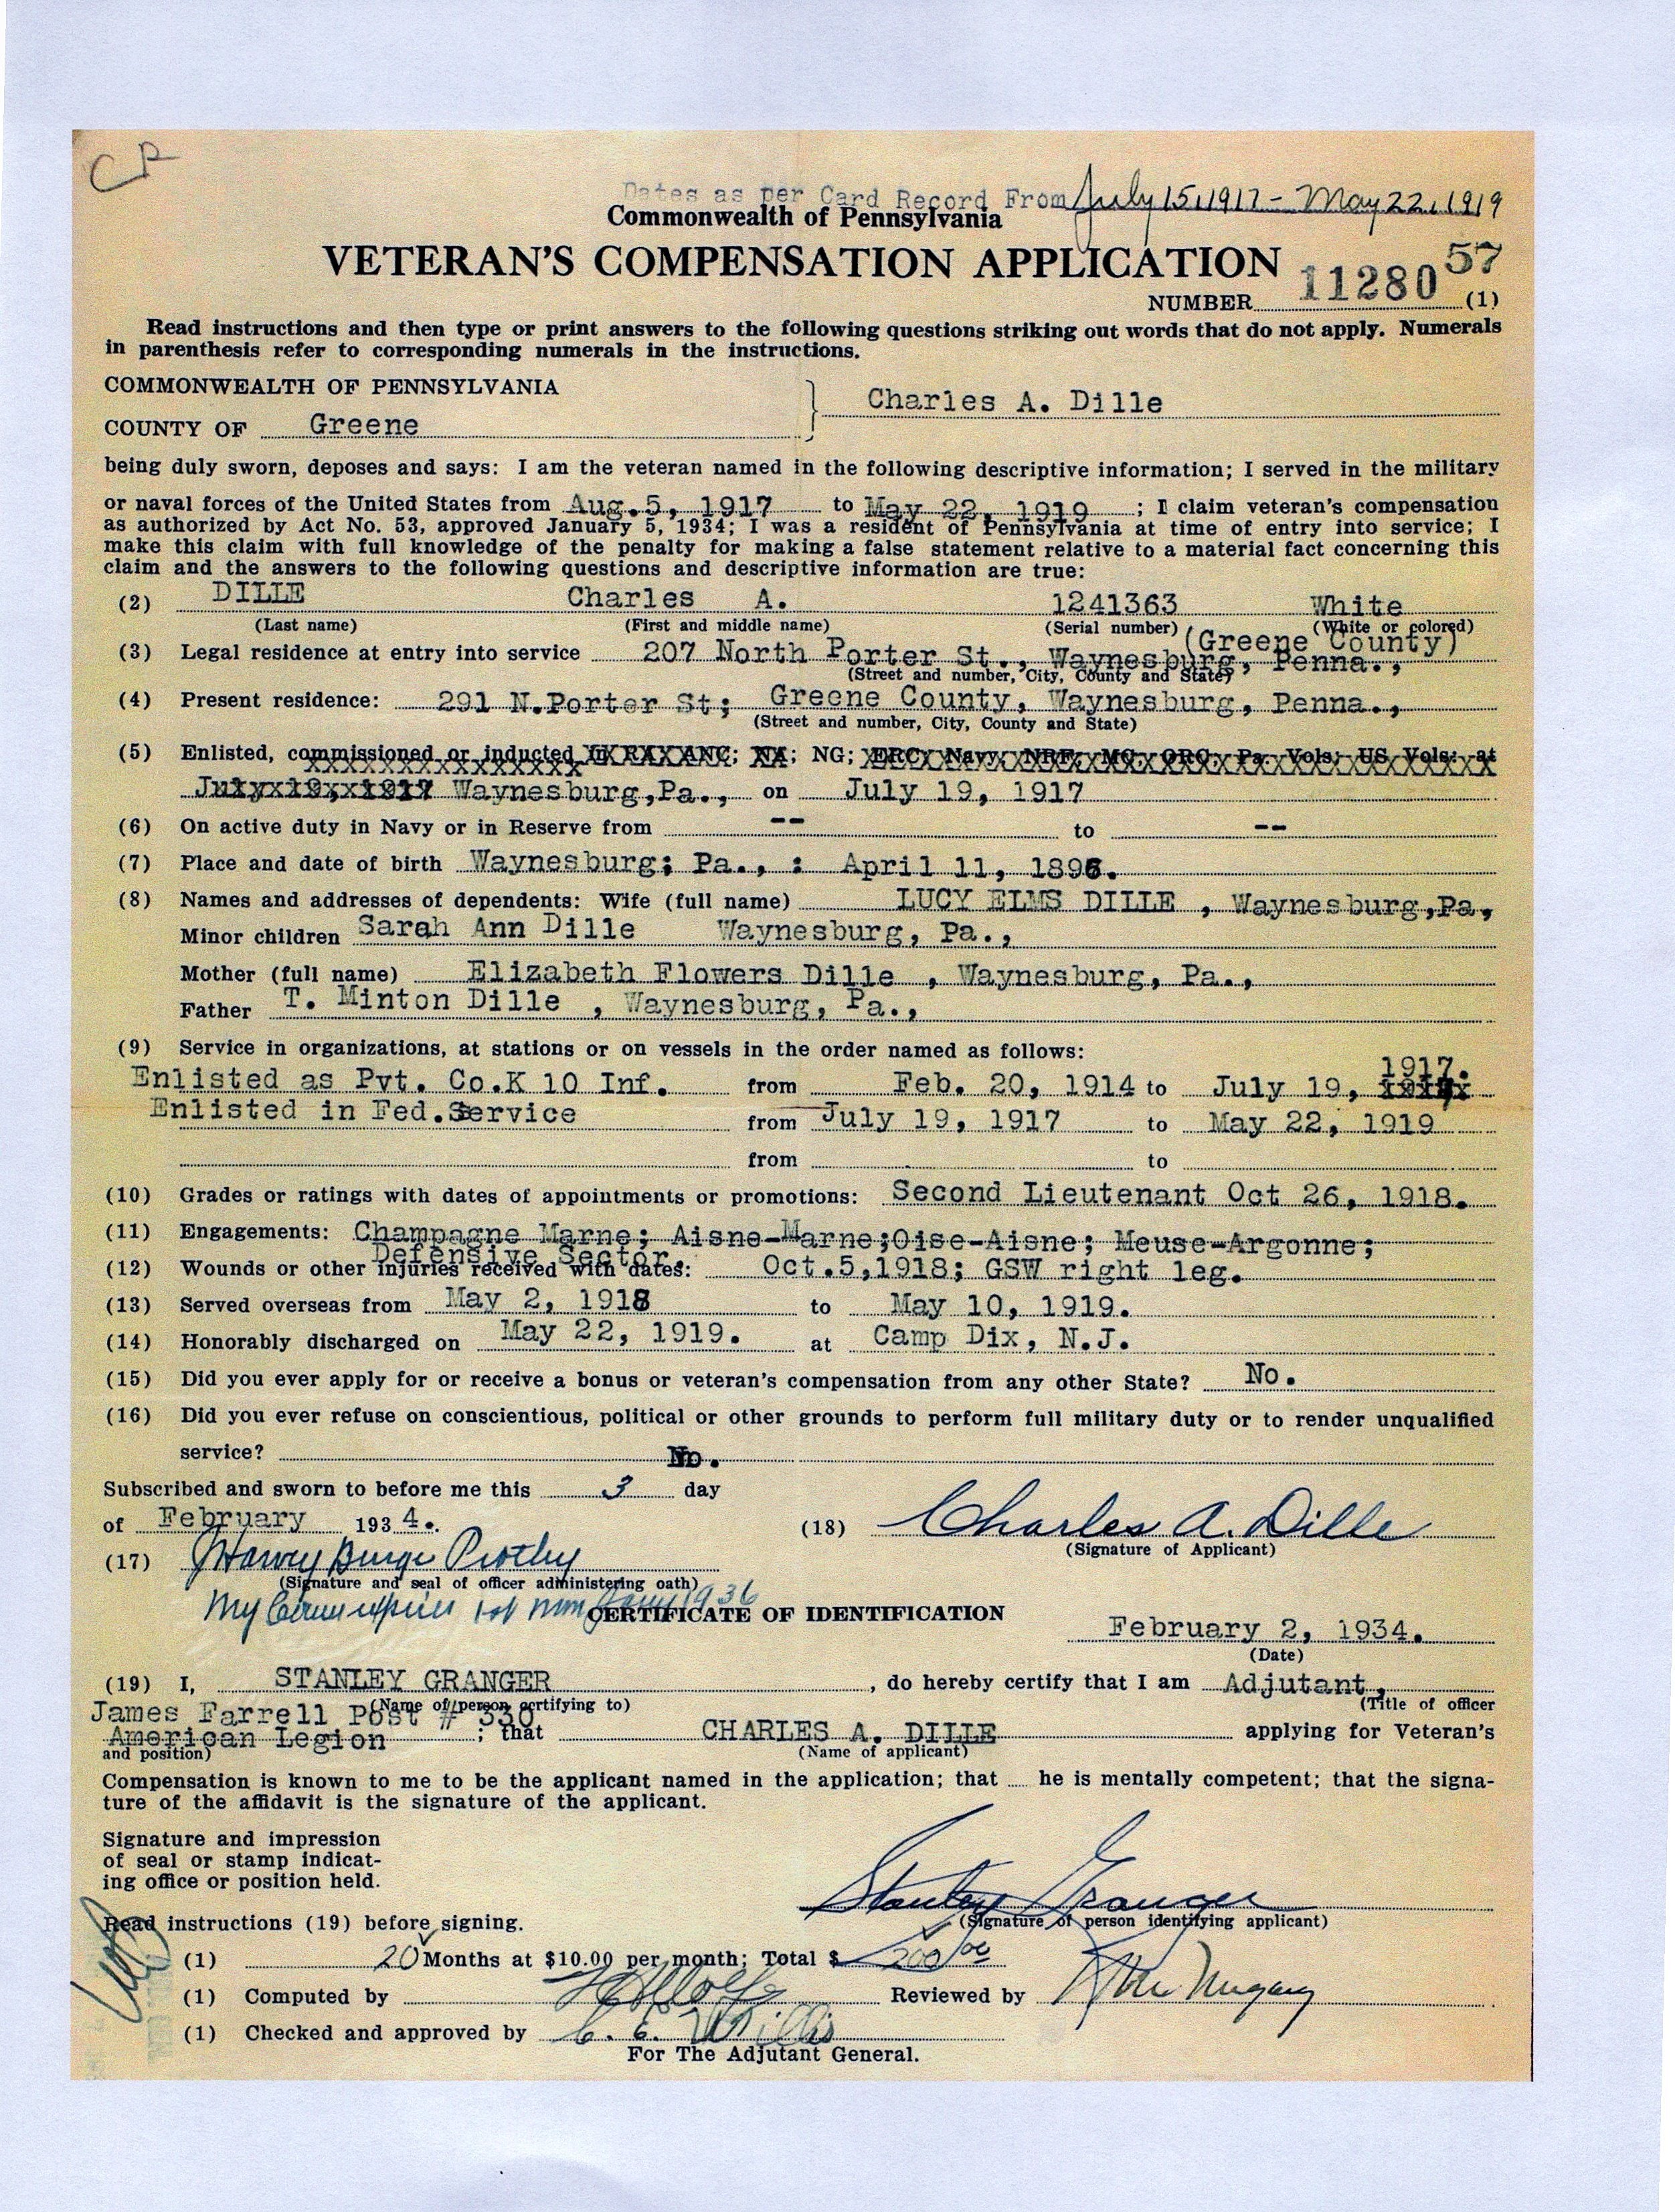 CP
Dates as per Card Record From July 15, 1917 - May 22, 1919
Commonwealth of Pennsylvania
VETERAN'S COMPENSATION APPLICATION
57
NUMBER 11280 (1)
Read instructions and then type or print answers to the following questions striking out words that do not apply. Numerals
in parenthesis refer to corresponding numerals in the instructions.
COMMONWEALTH OF PENNSYLVANIA
Charles A. Dille
COUNTY OF Greene
being duly sworn, deposes and says: I am the veteran named in the following descriptive information; I served in the military
or naval forces of the United States from Aug. 5, 1917 to May 22, 1919 ; I claim veteran's compensation
as authorized by Act No. 53, approved January 5, 1934; I was a resident of Pennsylvania at time of entry into service; I
make this claim with full knowledge of the penalty for making a false statement relative to a material fact concerning this
claim and the answers to the following questions and descriptive information are true:
(2) DILLE Charles A. 1241363 White
(Last name) (First and middle name) (Serial number) (White or colored)
(Greene County)
(3) Legal residence at entry into service 207 North Porter St., Waynesburg, Penna.,
(Street and number, City, County and State)
(4) Present residence: 291 N.Porter St; Greene County, Waynesburg, Penna.,
(Street and number, City, County and State)
(5) Enlisted, commissioned or inducted NA; NG; ERC; Navy; NRF; MC; ORC; Pa. Vols; US Vols; at
July 19, 1917 Waynesburg,Pa., on July 19, 1917
(6) On active duty in Navy or in Reserve from -- to --
(7) Place and date of birth Waynesburg; Pa., : April 11, 1896.
(8) Names and addresses of dependents: Wife (full name) LUCY ELMS DILLE , Waynesburg,Pa,
Minor children Sarah Ann Dille Waynesburg, Pa.,
Mother (full name) Elizabeth Flowers Dille , Waynesburg, Pa.,
Father T. Minton Dille , Waynesburg, Pa.,
(9) Service in organizations, at stations or on vessels in the order named as follows:
1917.
Enlisted as Pvt. Co.K 10 Inf. from Feb. 20, 1914 to July 19,
Enlisted in Fed.Service from July 19, 1917 to May 22, 1919
from to
(10) Grades or ratings with dates of appointments or promotions: Second Lieutenant Oct 26, 1918.
(11) Engagements: Champagne Marne; Aisne-Marne;Oise-Aisne; Meuse-Argonne;
Defensive Sector.
(12) Wounds or other injuries received with dates: Oct.5,1918; GSW right leg.
(13) Served overseas from May 2, 1918 to May 10, 1919.
(14) Honorably discharged on May 22, 1919. at Camp Dix, N.J.
(15) Did you ever apply for or receive a bonus or veteran's compensation from any other State? No.
(16) Did you ever refuse on conscientious, political or other grounds to perform full military duty or to render unqualified
service? No.
Subscribed and sworn to before me this 3 day
of February 1934.
(18) Charles A. Dille
(Signature of Applicant)
(17) Harvey
(Signature and seal of officer administering oath)
My 1936
CERTIFICATE OF IDENTIFICATION
February 2, 1934.
(Date)
(19) I, STANLEY GRANGER , do hereby certify that I am Adjutant,
(Name of person certifying to) (Title of officer
James Farrell Post # 330
American Legion ; that CHARLES A. DILLE applying for Veteran's
and position) (Name of applicant)
Compensation is known to me to be the applicant named in the application; that he is mentally competent; that the signa-
ture of the affidavit is the signature of the applicant.
Signature and impression
of seal or stamp indicat-
ing office or position held.
Stanley Granger
Read instructions (19) before signing. (Signature of person identifying applicant)
(1) 20 Months at $10.00 per month; Total $ 200 00
(1) Computed by Reviewed by
(1) Checked and approved by C. E. Willis
For The Adjutant General.